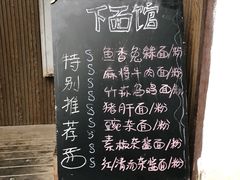 下面馆
特别推荐
鱼香兔丝面/粉
麻椒牛肉面/粉
竹荪乌鸡面/粉
猪肝面/粉
豌杂面/粉
素椒杂酱面/粉
红/清汤杂酱面/粉